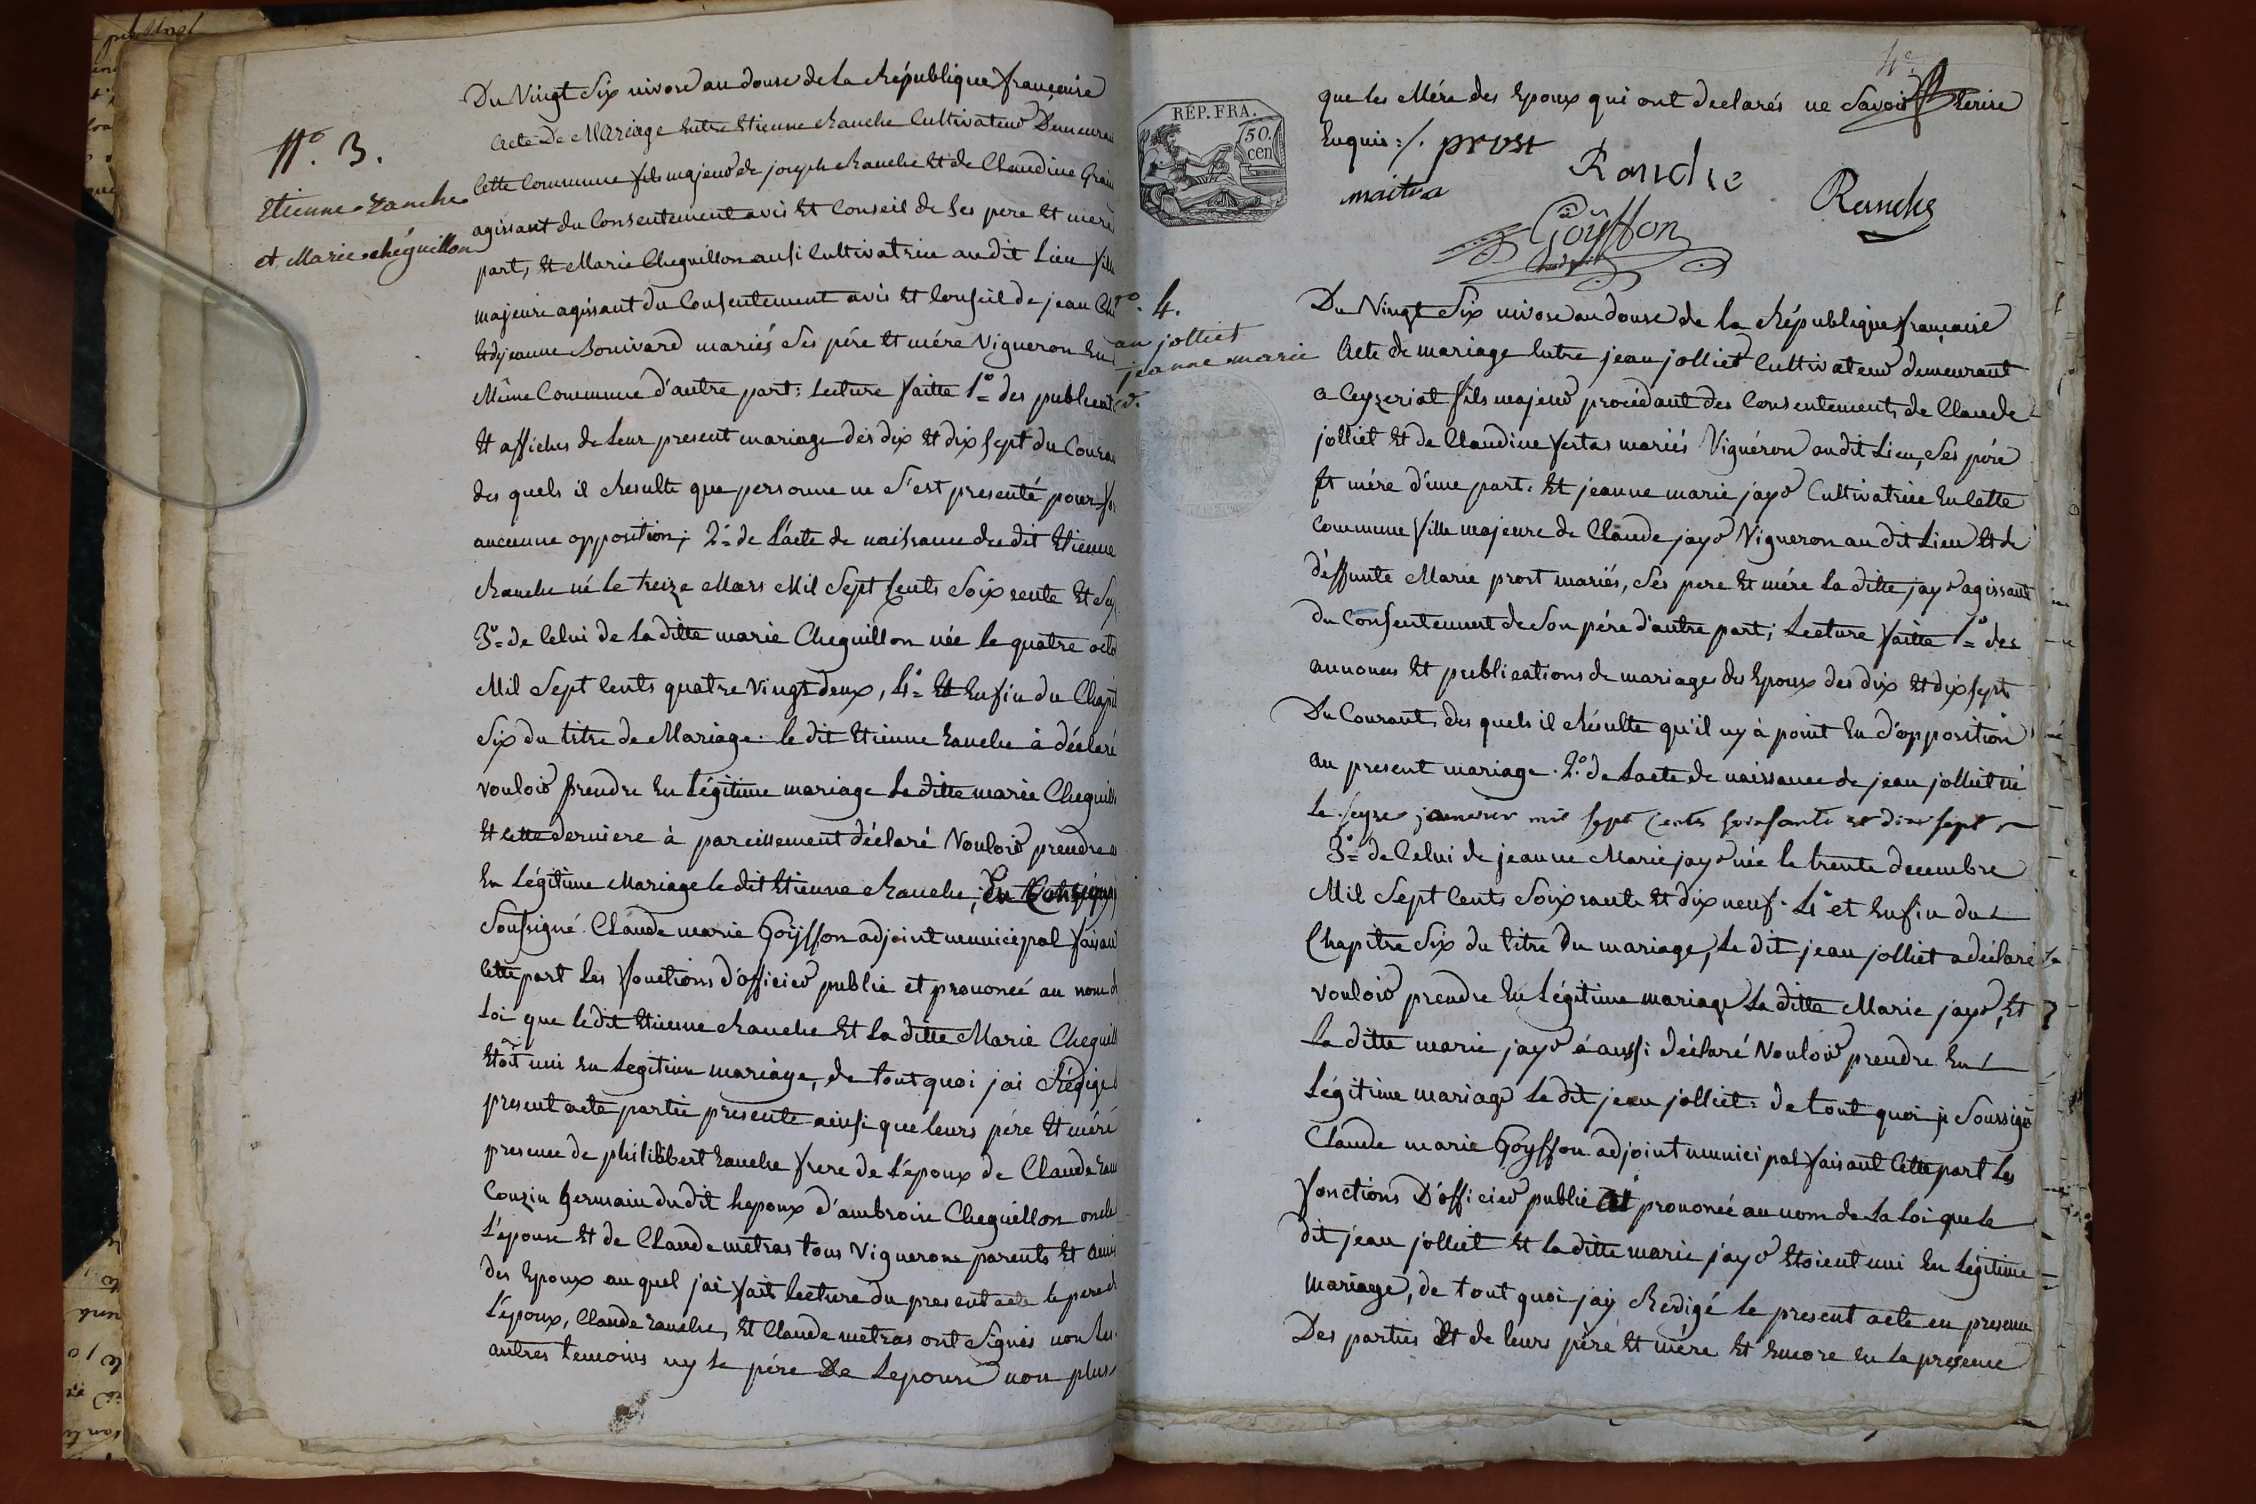 N.° 3.
Etienne Ranche
et Marie cheguillon
Du Vingt Six nivose an douse de la République française
Acte De Mariage Entre Etienne Ranche Cultivateur Demeurant
Cette Commune fils majeur de joseph Ranche Et de Claudine
agissant du Consentement avis Et Conseil de Ses pere Et mere
part, Et Marie Cheguillon ausi Cultivatrice au dit Lieu fille
majeure agissant du Consentement avis Et Conseil de jean
Et de jeanne Bonivard mariés Ses pére Et mére Vigneron En
Même Commune d'autre part : Lecture faitte 1.° des publicat
Et affiches de Leur present mariage des dix Et dix Sept du Coura
des quels il Resulte que personne ne S'est presenté pour
aucunne opposition ; 2.° de L'acte de naissance du dit Etienne
Ranche né Le treize Mars Mil Sept Cents Soixsente Et
3.° de Celui de La ditte marie Cheguillon née le quatre octo
Mil Sept Cents quatre Vingt deux, 4.° Et Enfin du Chapit
Six du titre de Mariage. le dit Etienne Ranche à déclaré
vouloir prendre En Légitime mariage La ditte marie Cheguill
Et Cette derniere à pareillement déclaré Vouloir prendre
En Légitime Mariage le dit Etienne Ranche ;
Sousigné Claude marie Goÿffon adjoint municipal faisant
Cette part Les fonctions d'officier public et prononcé au nom d
Loi que le dit Etienne Ranche Et La ditte Marie Cheguill
Etoit uni En Legitime mariage, de tout quoi jai Rédigé
present acte partie presente ainsi que leurs pére Et mére
presence de philibbert Ranche frere de L'époux de Claude Ran
Couzin Germain du dit Lepoux d'ambroise Cheguillon oncle
L'épouse Et de Claude métras tous Vignerons parents Et amis
des Epoux au quel jai fait Lecture du present acte le pere d
L'époux, Claude Ranche, Et Claude metras ont Signés non Les
autres temoins ny le pére De Lepouse non plus
4.e
que les Mére des Epoux qui ont declarés ne Savoir Ecrire
Enquis :/. prost
Ranche
maitra
Ranche
Goÿffon
RÉP. FRA.
50.
cen
4.
an jolliet
jeanne marie
Du Vingt Six nivose an douse de la République française
Acte de mariage Entre jean jolliet Cultivateur demeurant
a Ceyzeriat fils majeur procédant des Consentements de Claude
jolliet Et de Claudine fertas mariés Vignéron au dit Lieu, Ses pére
Et mére d'une part. Et jeanne marie jayr Cultivatrice En Cette
Commune fille majeure de Claude jayr Vigneron au dit Lieu Et de
deffunte Marie prost mariés, Ses pere Et mére La ditte jayr agissant
du Consentement de Son pére d'autre part ; Lecture faitte 1.° des
annonces Et publications de mariage des Epoux des dix Et dix Sept
Du Courant des quels il Résulte qu'il ny à point Eu d'opposition
au present mariage. 2.° de Lacte de naissance de jean jolliet né
le seyze janvier mil sept cents soissante et dix sept
3.° de Celui de jeanne Marie jayr née le trente decembre
Mil Sept Cents Soixsante Et dix neuf. 4.° et Enfin du
Chapitre Six du titre du mariage, Le dit jean jolliet a déclaré
vouloir prendre En Légitime mariage La ditte Marie jayr, Et
La ditte marie jayr á aussi déclaré Vouloir prendre En
Légitime mariage Le dit jean jolliet : de tout quoi je Soussigné
Claude marie Goyffon adjoint municipal faisant Cette part Les
fonctions D'officier public ai prononcé au nom de La Loi que Le
dit jean jolliet Et la ditte marie jayr Etoient uni En Légitime
Mariage, de tout quoi jaÿ Redigé Le present acte en presence
Des parties Et de leurs pére Et mére Et Encore En La presence